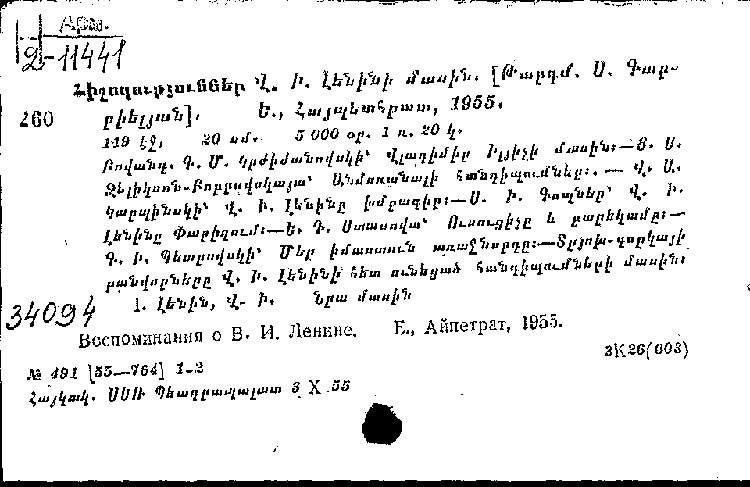 Арм.
2-11441
Հիշողություններ Վ. Ի. Լենինի մասին. [Թարգմ. Ս. Գաբ-
260 րիելյան]. Ե., Հայպետհրատ, 1955.
119 էջ, 20 սմ. 5 000 օր. 1 ռ. 20 կ.
Բովանդ. Գ. Մ. Կրժիժանովսկի՝ Վլադիմիր Իլյիչի մասին:—Ց. Ս.
Զելիկսոն-Բոբրովսկայա՝ Անմոռանալի հանդիպումները:— Վ. Ա.
Կարպինսկի՝ Վ. Ի. Լենինը խմբագիր:—Ս. Ի. Գոպները՝ Վ. Ի.
Լենինը Փարիզում:—Ե. Դ. Ստասովա՝ Ուսուցիչը և բարեկամը:—
Գ. Ի. Պետրովսկի՝ Մեր իմաստուն առաջնորդը:—
բանվորները Վ. Ի. Լենինի հետ ունեցած հանդիպումների մասին:
1. Լենին, Վ. Ի. Նրա մասին
34094
Воспоминания о В. И. Ленине. Е., Айпетрат, 1955.
3К26(603)
№ 491 [55—764] 1-2
Հայկակ. ՍՍՌ Պետգրապալատ 3 X 55